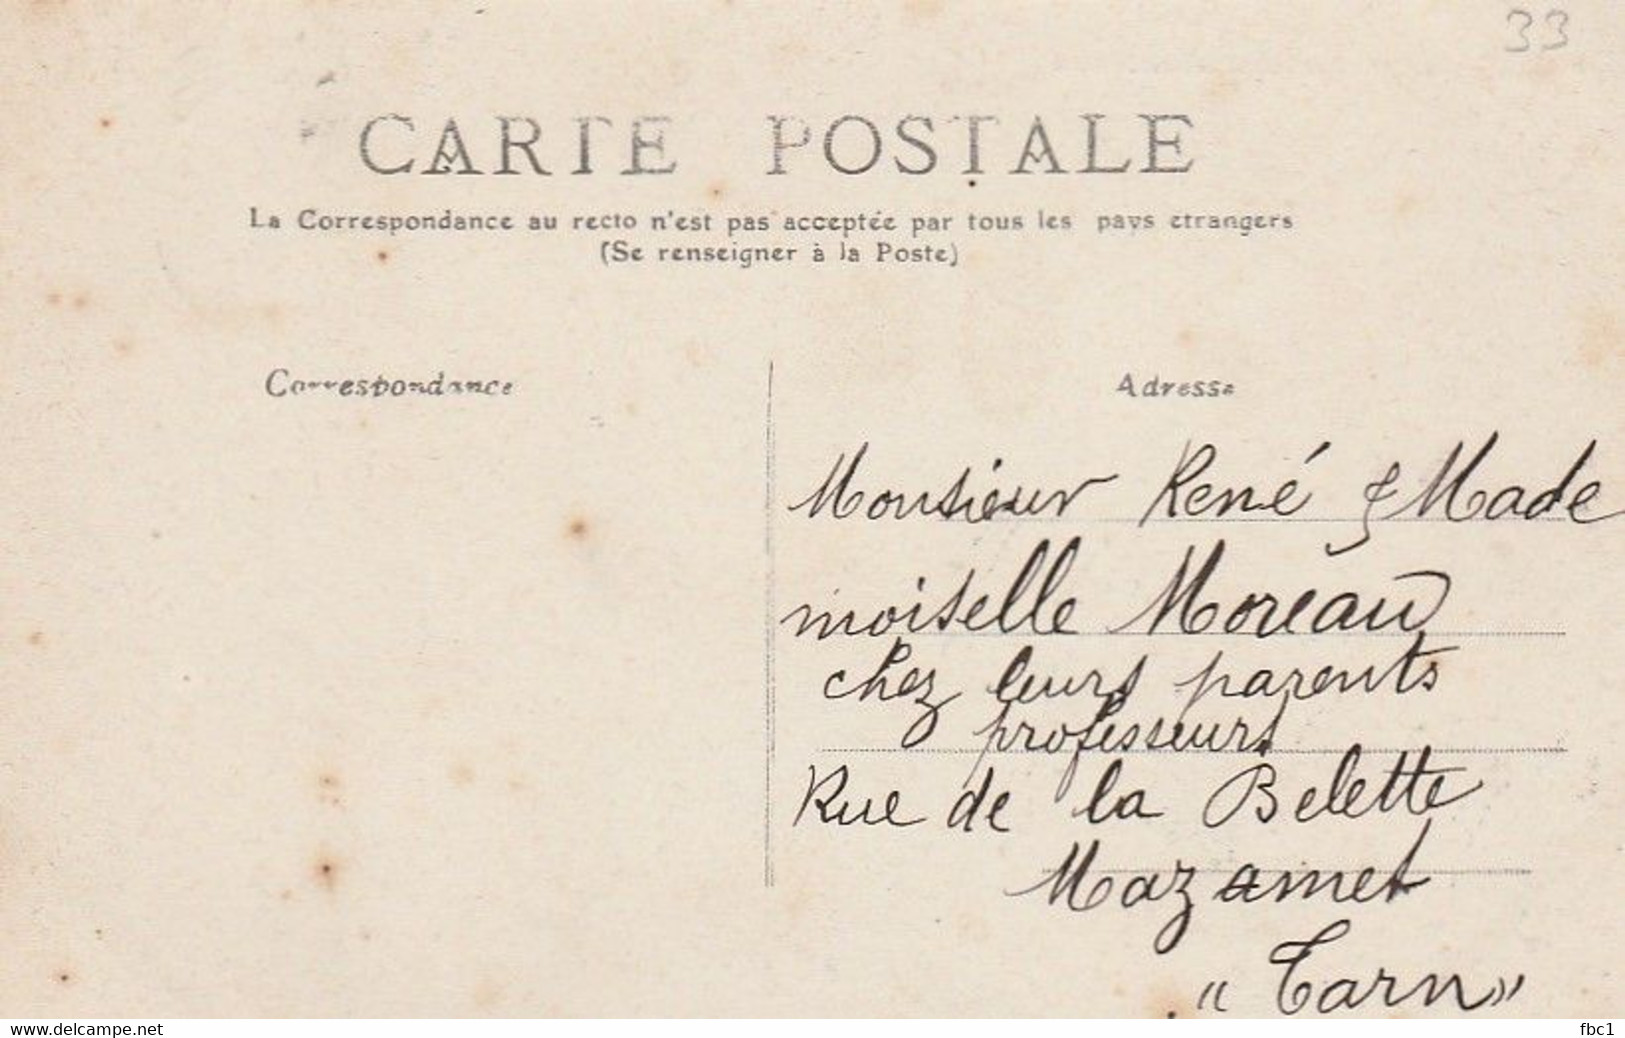 33
CARTE POSTALE
La Correspondance au recto n'est pas acceptée par tous les pays etrangers
(Se renseigner à la Poste)
Correspondance
Adresse
Monsieur René & Made
moiselle Moreau
chez leurs parents
professeurs
Rue de la Belette
Mazamet
« Tarn »
www.delcampe.net
fbc1